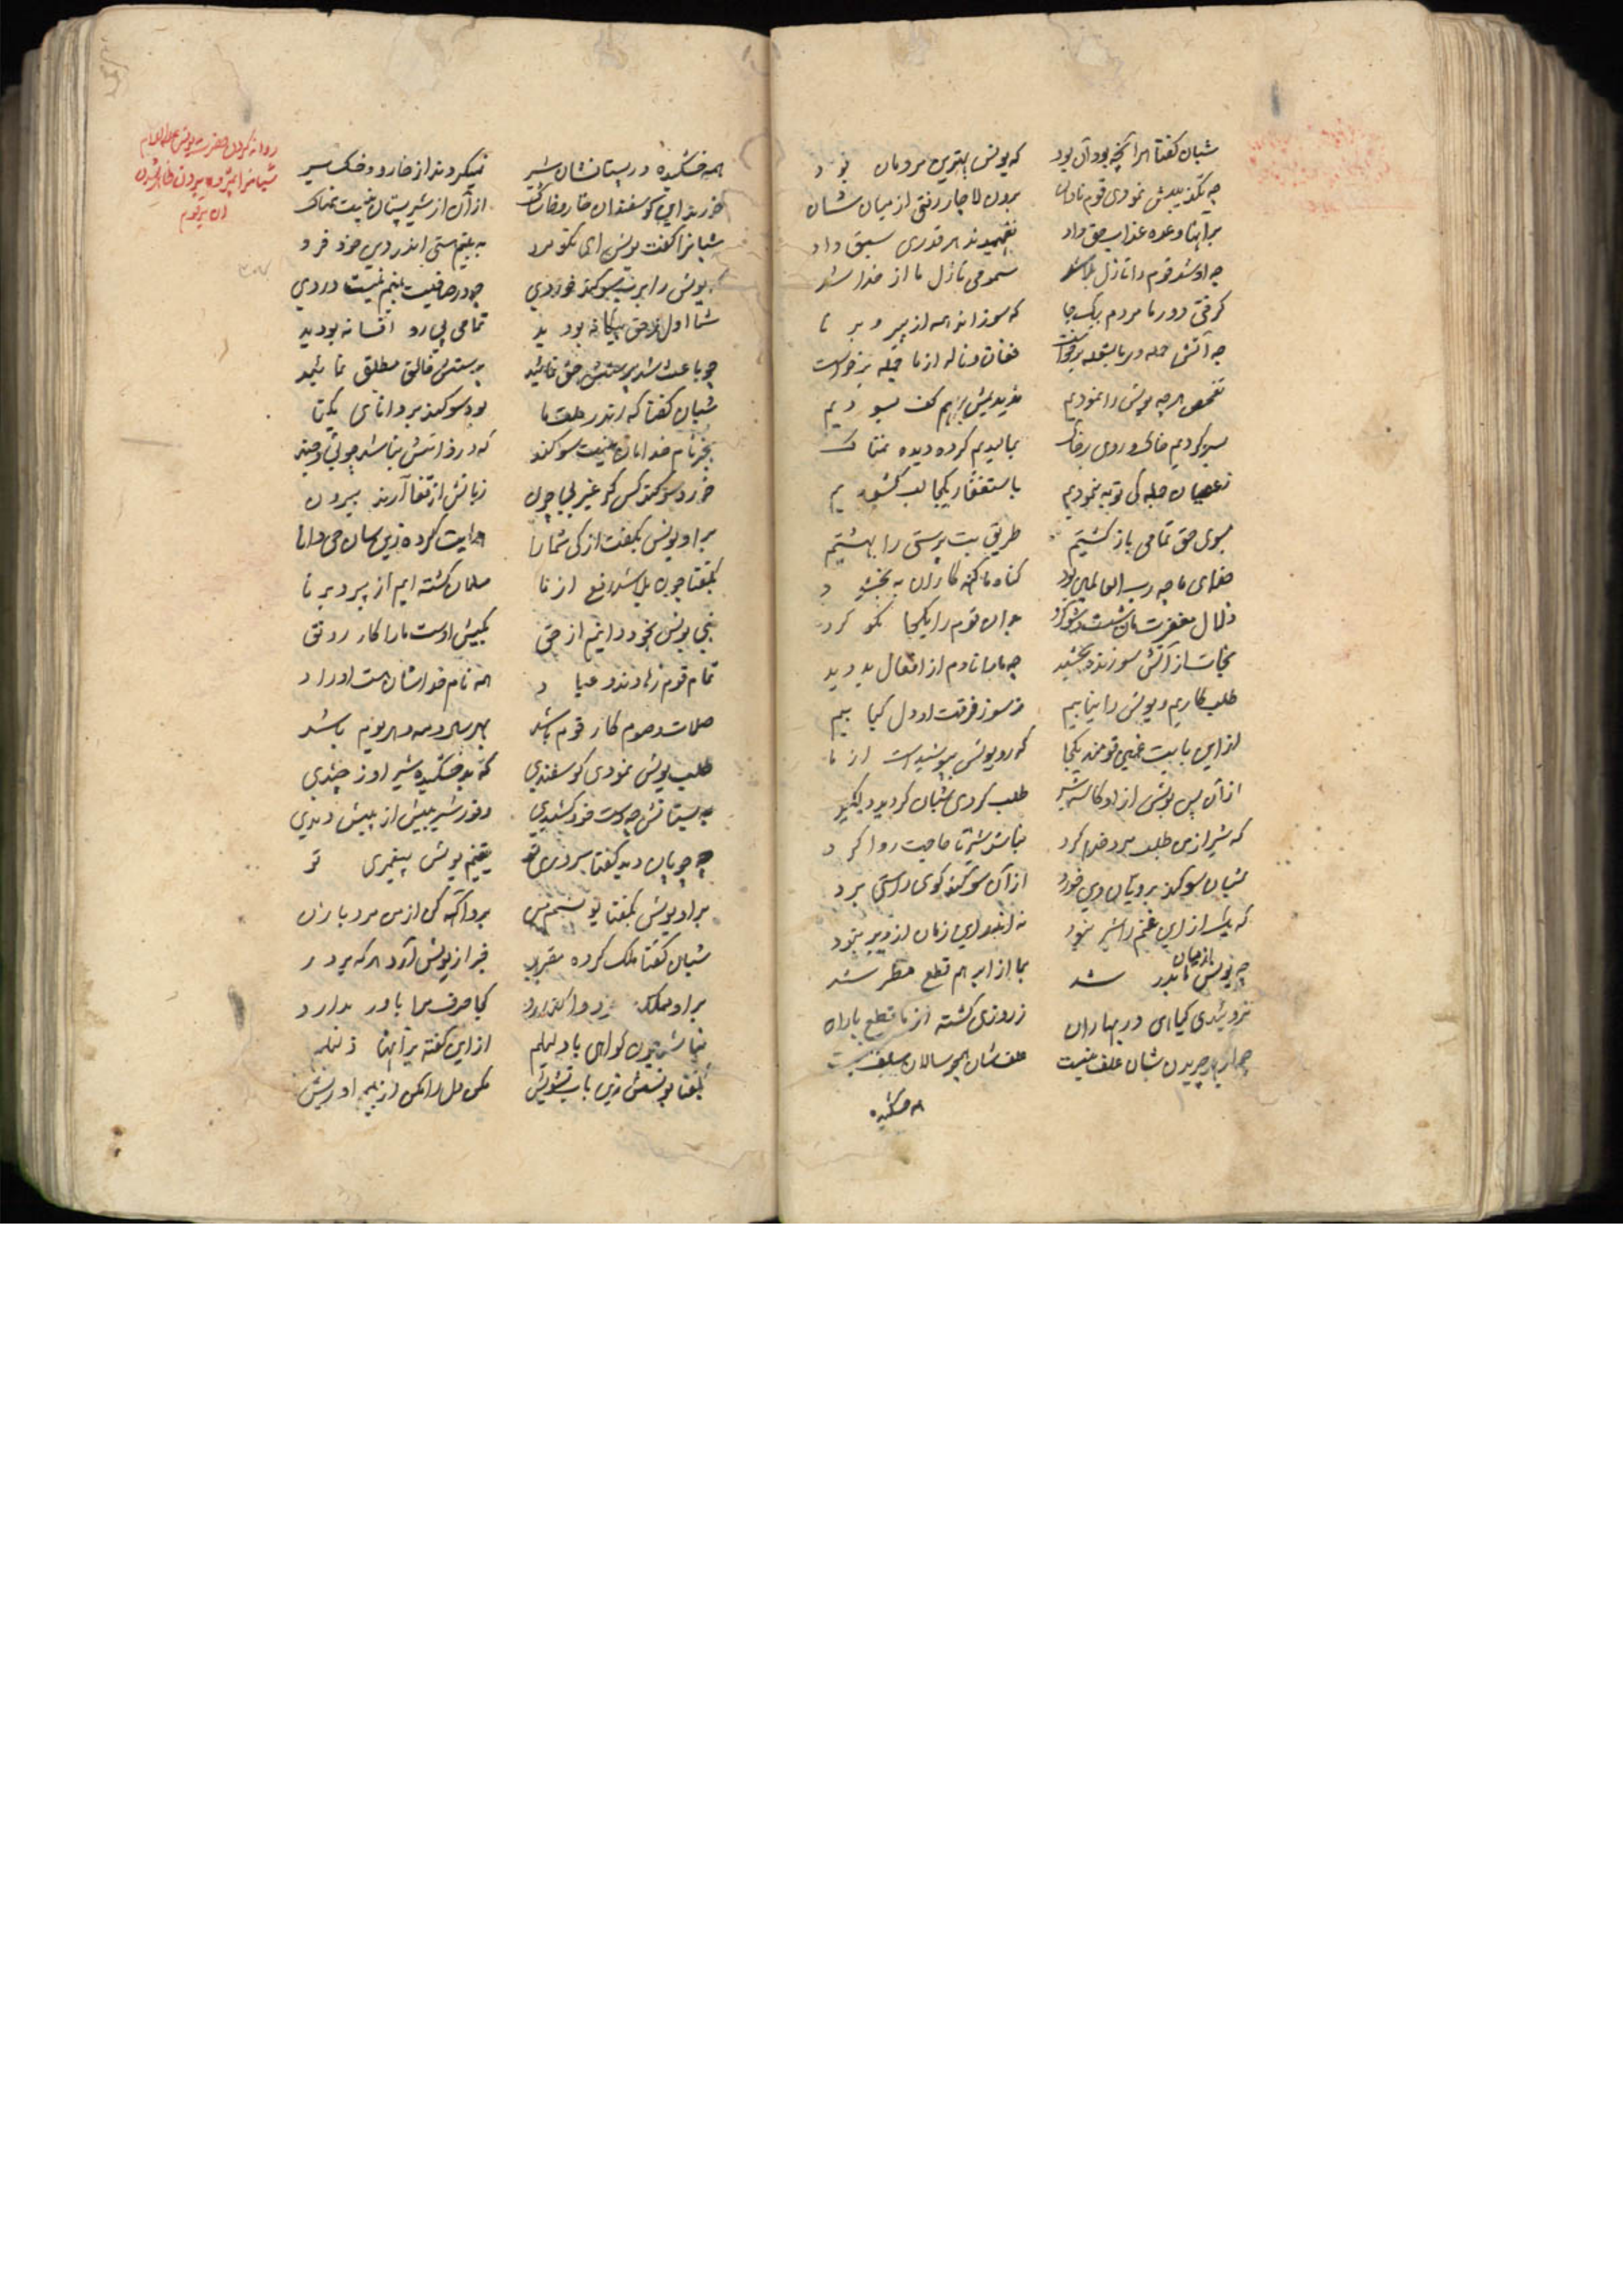 شبان گفتا هرآنچه بود آن بود که یونس بهترین مردمان بود
چه تکذیبش نمودی قوم نادان برون لاچار رفتی از میان شان
برانها وعده عذاب حق داد نفهمیدند هر قدری سبق داد
چه او شد قوم را نازل بلا شد سمومی نازل ما از خدا شد
گرفتی دور ما مردم بیکجا که سوزاند همه از پیر و برنا
چه آتش جمله در ما شعله فغان و ناله از ما جمله برخواست
تفحص هرچه یونس را نمودیم ندیدیمش بهم کف بسودیم
بسر کردیم خاک و روی بر خاک بمالیدیم کرده دیده نمناک
زعصیان جمله کی توبه نمودیم باستغفار یکجا لب گشودیم
بسوی حق تمامی باز گشتیم طریق بت پرستی را بهشتیم
خدای ما چه رب العالمین بود گناه ما گنه کاران ببخشود
زلال مغفرت مان شست و شو کرد بدان قوم را یکجا نکو کرد
نجات از آتش سوزنده بخشید چه ماها نادم از افعال بد دید
طلب کاریم و یونس را نیابیم ز سوز فرقت او دل کبابیم
از این بابیت غمین قومند یکجا که رو یونس بپوشیداست از ما
از آن پس یونس از او کاسه شیر طلب کردی شبان گردید دلگیر
که شیر از من طلب مرد خدا کرد نباشد شیر تا حاجت روا کرد
شبان سوگند بر دیان دین خورد از آن سوگند گوی راستی برد
که یک از این غنم را شیر نبود نه اندر این زمان از دیر نبود
چه یونس از میان ما بدر شد بما از ابر هم قطع مطر شد
نروئیدی گیاهی در بهاران ز روزی گشته از ما قطع باران
چرا بهر چریدن شان علف نیست علف شان همچو سالان سلف نیست
همه خشکیده
روانه کردن حضرت یونس علیه السلام
شبانرا
ان بر قوم
همه خشکیده در پستانشان شیر نمیگردند از خار و خسک سیر
خورند این گوسفندان خار و خاشاک از آن از شیر پستان نیست نمناک
شبانرا گفت یونس ای نکومرد به بینم ستی اندر دین خود فرد
یونس را برب سوگند خوردی چه در صافیت بینم نیست دردی
شما اول ز حق بیگانه بودید تمامی پی رو افسانه بودید
چه باعث شد پرستش حق نمائید پرستش خالق مطلق نمائید
شبان گفتا که اندر ملت ما بود سوگند بر دانای یکتا
بجز نام خدامان نیست سوگند که در ذاتش نباشد چونی و چند
خورد سوگند کس گر غیر بیچون زبانش از قفا آرند بیرون
بر او یونس بگفت از کی شما را هدایت کرده زین سان حی دانا
بگفتا چون بلا شد رفع از ما مسلمان گشته ایم از پیر و برنا
نبی یونس بخود دانیم از حق بکیش اوست ما را کار رونق
تمام قوم زهادند و عباد همه نام خداشان هست اوراد
صلات و صوم کار قوم باشد بهر سال و مه و هر یوم باشد
طلب یونس نمودی گوسفندی که بد خشکیده شیر او ز چندی
به پستانش چه دست خود کشیدی وفور شیر بیش از پیش دیدی
چه چوپان دید گفتا سروری تو یقینم یونس پیغمبری تو
بر او یونس بگفتا یونسم من برو آگه کن از من مرد با زن
شبان گفتا ملک کرده مقرر خبر از یونس آرد هر که بر در
بر او ملک کیا حرف مرا باور ندارد
نباشد چون گواهی بادلیلم از این گفته برآنها
بگفتا یونسش زین باب تشویش مکن دل را مکن از بیم او ریش